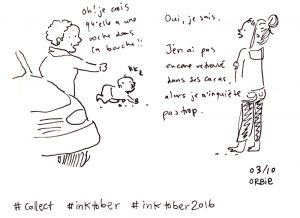 oh! je crois
qu'elle a une
roche dans
la bouche!!
Oui, je sais.
J'en ai pas
encore retrouvé
dans ses cacas,
alors je m'inquiète
pas trop.
03/10
ORBIE
#collect #inktober #inktober2016